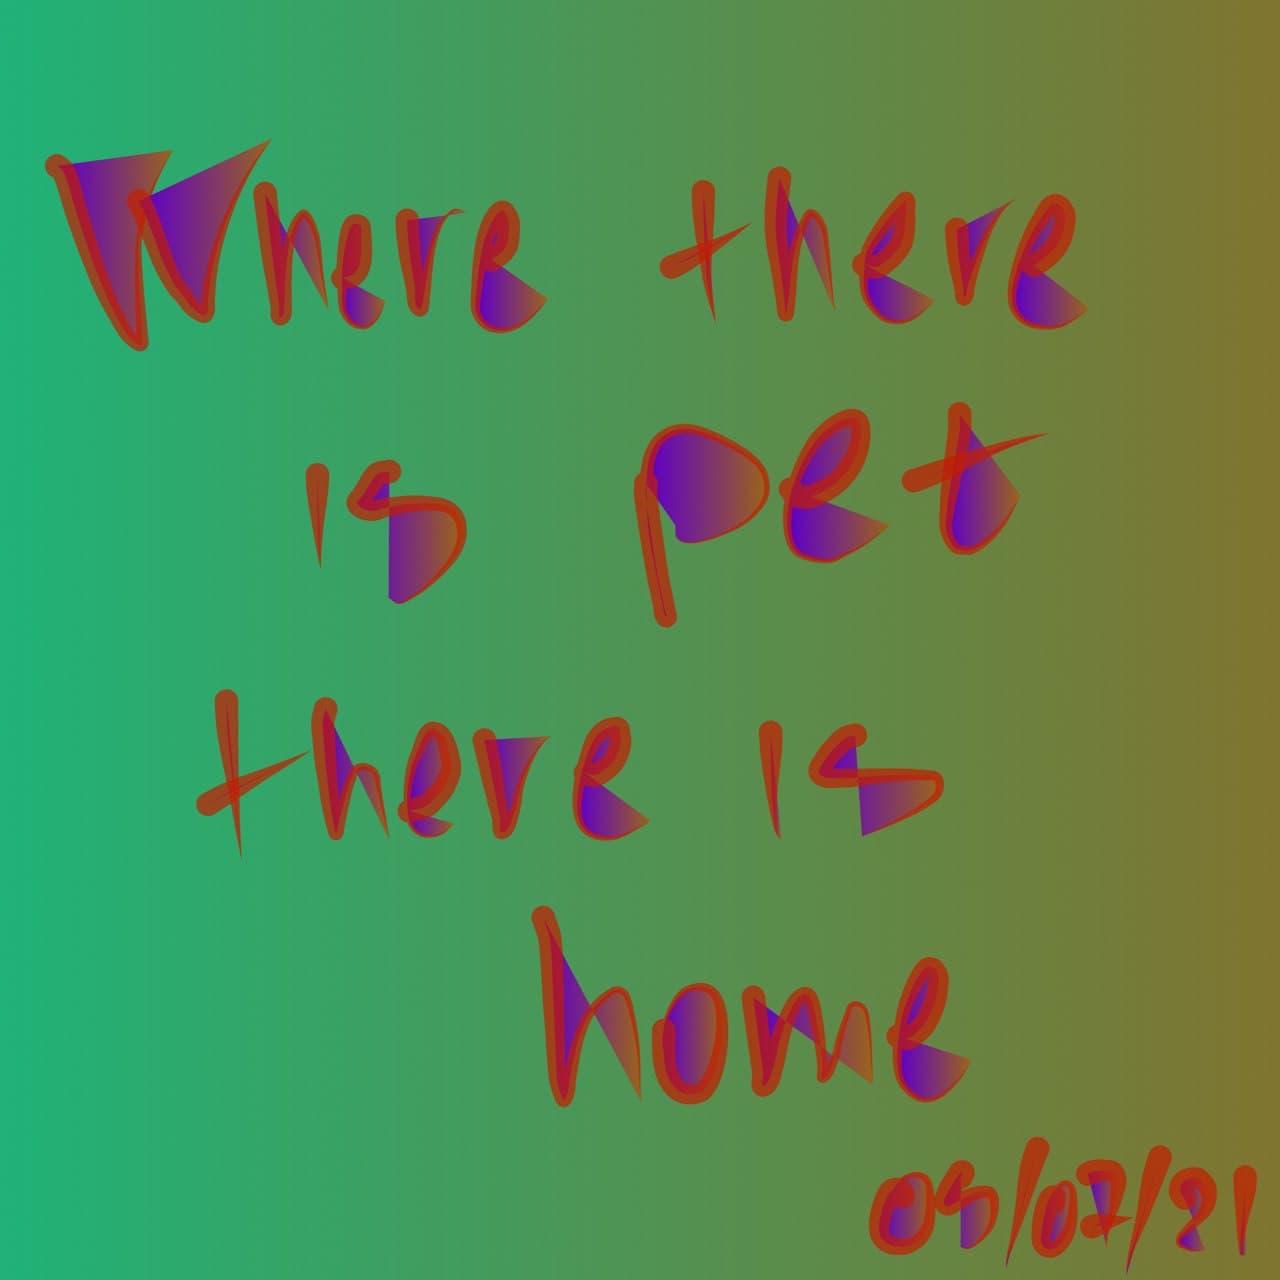 Where there
is pet
there is
home
05/07/21